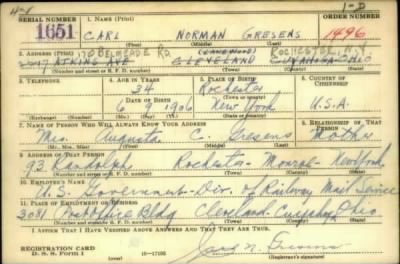 1-D
SERIAL NUMBER 1. NAME (Print) ORDER NUMBER
1651 CARL NORMAN GRESENS 1496
(First) (Middle) (Last)
170 BELMEADE RD. ROCHESTER, N.Y.
2. ADDRESS (Print)
ATKINS AVE CLEVELAND CUYAHOGA OHIO
(Number and street or R. F. D. number) (Town) (County) (State)
3. TELEPHONE 4. AGE IN YEARS 5. PLACE OF BIRTH 6. COUNTRY OF CITIZENSHIP
34 Rochester
DATE OF BIRTH
6 9 1906 New York U.S.A.
(Exchange) (No.) (Mo.) (Day) (Yr.) (State or country)
7. NAME OF PERSON WHO WILL ALWAYS KNOW YOUR ADDRESS 8. RELATIONSHIP OF THAT PERSON
Mrs. Augusta C. Gresens Mother
(Mr., Mrs., Miss) (First) (Middle) (Last)
9. ADDRESS OF THAT PERSON
93 Randolph Rochester - Monroe - New York
(Number and street or R. F. D. number) (Town) (County) (State)
10. EMPLOYER'S NAME
U.S. Government - Div. of Railway Mail Service
11. PLACE OF EMPLOYMENT OR BUSINESS
3081 Post Office Bldg Cleveland - Cuyahoga Ohio
(Number and street or R. F. D. number) (Town) (County) (State)
I AFFIRM THAT I HAVE VERIFIED ABOVE ANSWERS AND THAT THEY ARE TRUE.
REGISTRATION CARD
D. S. S. Form 1 16-17105 Carl N. Gresens
(Registrant's signature)